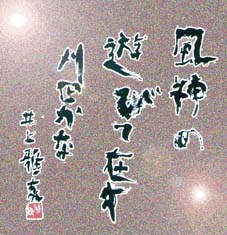 風神の
遊びて在す
川口かな
井上雅